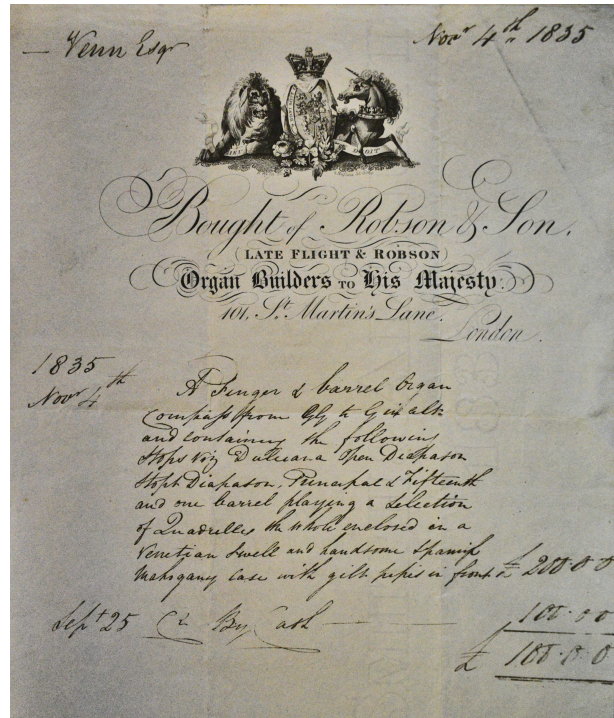 — Venn Esqr
Novr 4th 1835
DROIT
Bought of Robson & Son.
(LATE FLIGHT & ROBSON)
Organ Builders TO His Majesty.
101, St. Martin's Lane.
London.
1835
Novr 4th
A Finger & barrel Organ
compass from GG to G in alt
and containing the following
Stops viz Dulciana Open Diapason
Stopt Diapason, Principal & Fifteenth
and one barrel playing a selection
of Quadrilles the whole enclosed in a
Venetian Swell and handsome Spanish
Mahogany case with gilt pipes in front £ 200.0.0
Sept 25 Cr By Cash — 100.0.0
£ 100.0.0